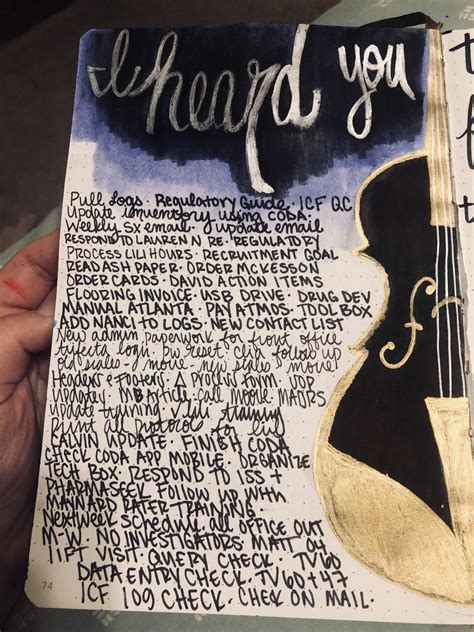 I heard you
Pull Logs · Regulatory Guide · ICF QC
update inventory using CODA ·
Weekly Sx email · update email
RESPOND TO LAUREN N RE · REGULATORY
PROCESS LILI HOURS · RECRUITMENT GOAL
READ ASH PAPER · ORDER MCKESSON
ORDER CARDS · DAVID ACTION ITEMS
FLOORING INVOICE · USB DRIVE · DRUG DEV
MANUAL ATLANTA · PAY ATMOS · TOOL BOX
ADD NANCI TO LOGS · NEW CONTACT LIST
New admin paperwork for front office
trifecta login · pw reset · follow up
old scales - move · new scales - move
Headers & Footers · Δ process form ·
updates · call Moore
update training training
print all protocol for
KALVIN UPDATE · FINISH CODA
CHECK CODA APP MOBILE · ORGANIZE
TECH BOX · RESPOND TO ISS +
PHARMASEEK · FOLLOW UP WITH
MAYNARD RATER TRAINING ·
Next week schedule all OFFICE OUT
M-W · NO INVESTIGATORS · MATT 04
11FT VISIT · QUERY CHECK · TV60
DATA ENTRY CHECK · TV60 + 47
ICF 109 CHECK · CHECK ON MAIL ·
74